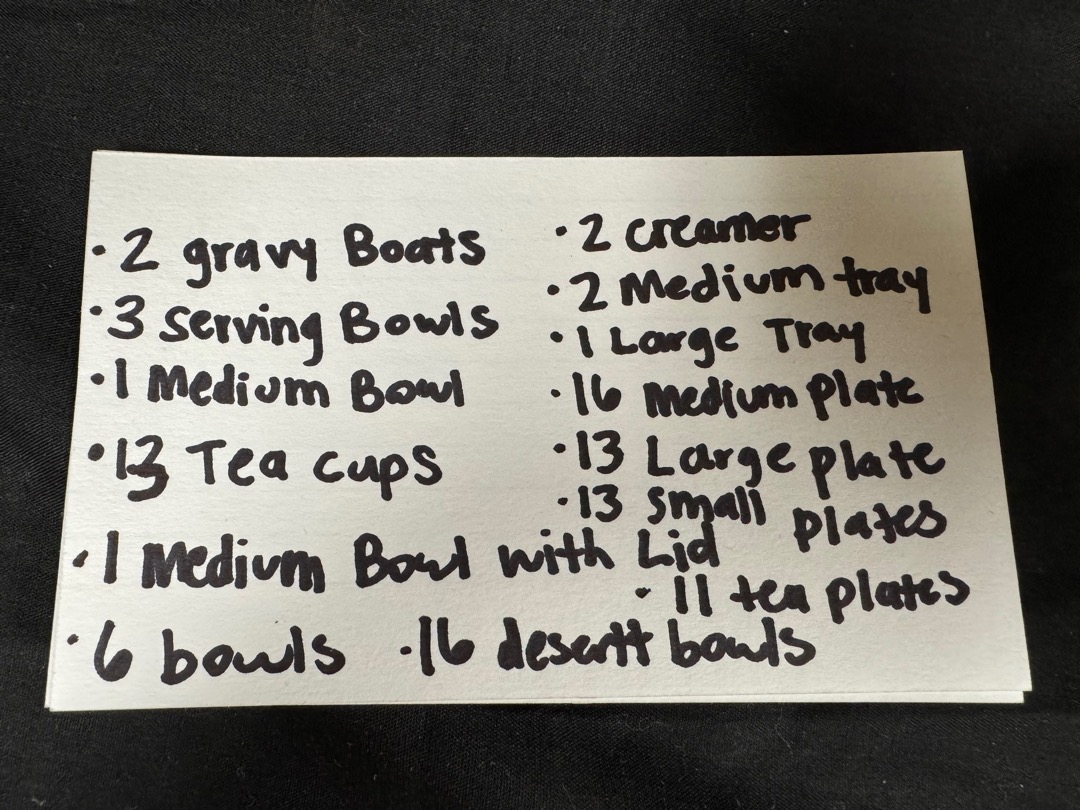 • 2 gravy Boats
• 3 Serving Bowls
• 1 Medium Bowl
• 13 Tea cups
• 1 Medium Bowl with Lid
• 6 bowls
• 16 desertt bowls
• 2 creamer
• 2 Medium tray
• 1 Large Tray
• 16 Medium plate
• 13 Large plate
• 13 Small plates
• 11 tea plates